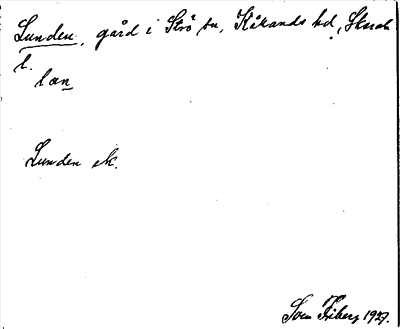 Lunden, gård i Strö sn, Kåkands hd, Skarab.
l.
län
Lunden ek.
Sven Friberg 1927.